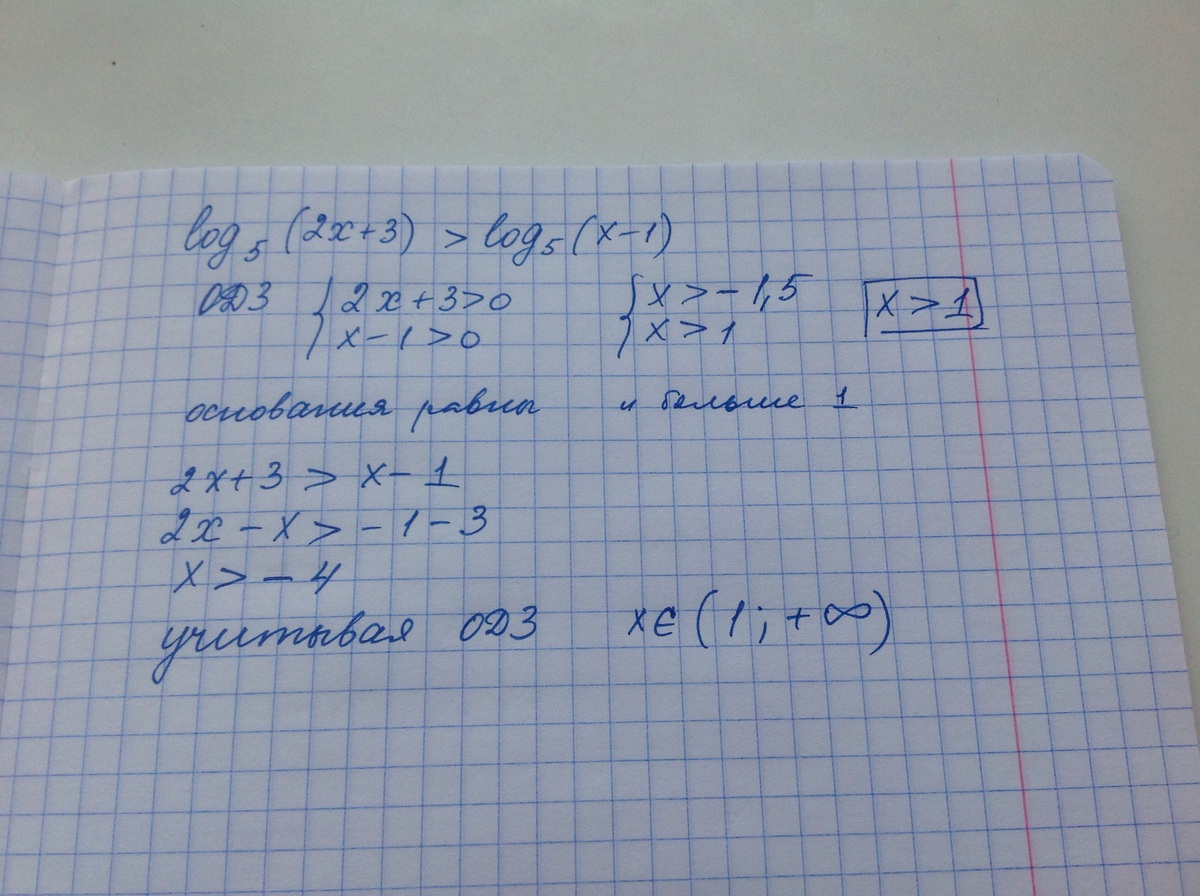 log₅(2x+3) > log₅(x-1)
ОДЗ { 2x+3>0 { x>-1,5 x>1
x-1>0 x>1
основания равны и больше 1
2x+3 > x-1
2x-x > -1-3
x > -4
учитывая ОДЗ x∈(1;+∞)